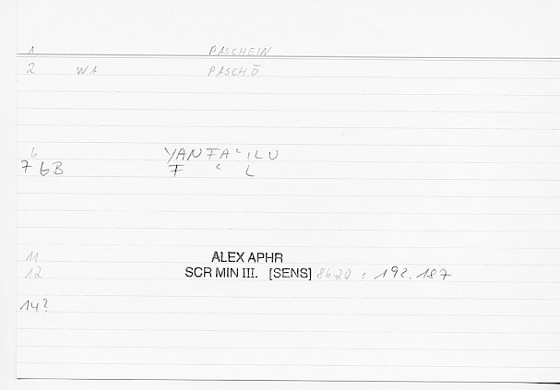 1 PASCHEIN
2 WA PASCHŌ
6 YANFAʿILU
7 6B F ʿ L
11 ALEX APHR
12 SCR MIN III. [SENS] 8620 : 192.187
14?